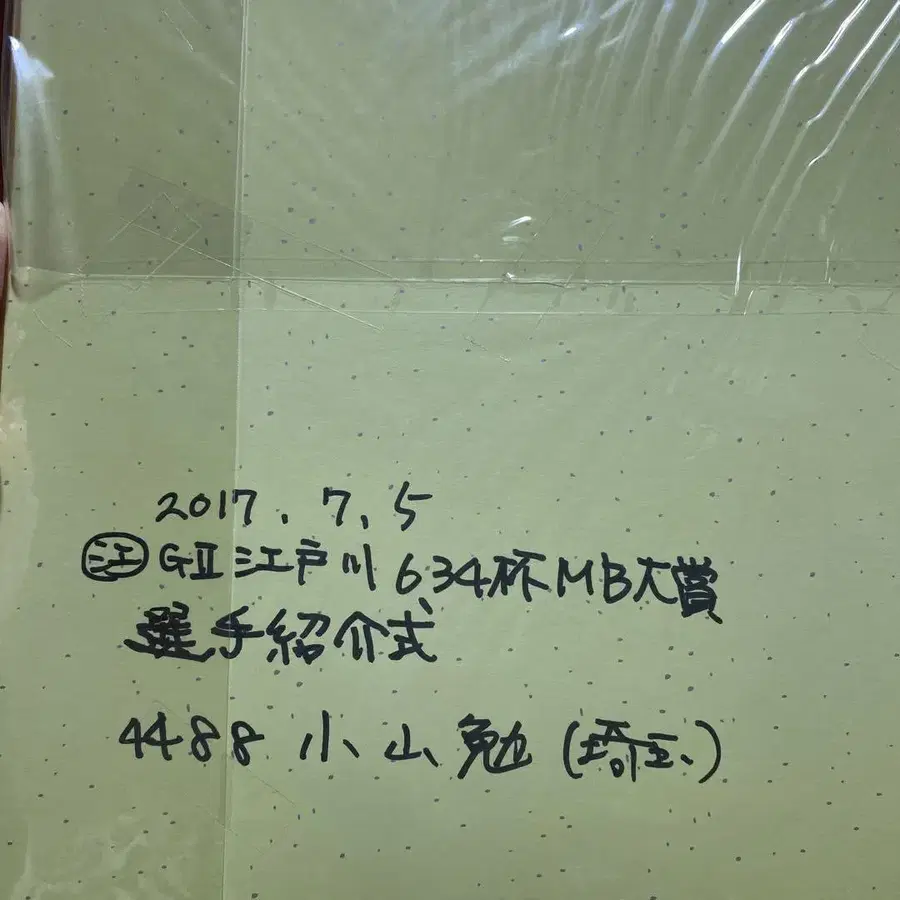 2017.7.5
㋓ GⅡ江戸川634杯MB大賞
選手紹介式
4488 小山勉(埼玉)